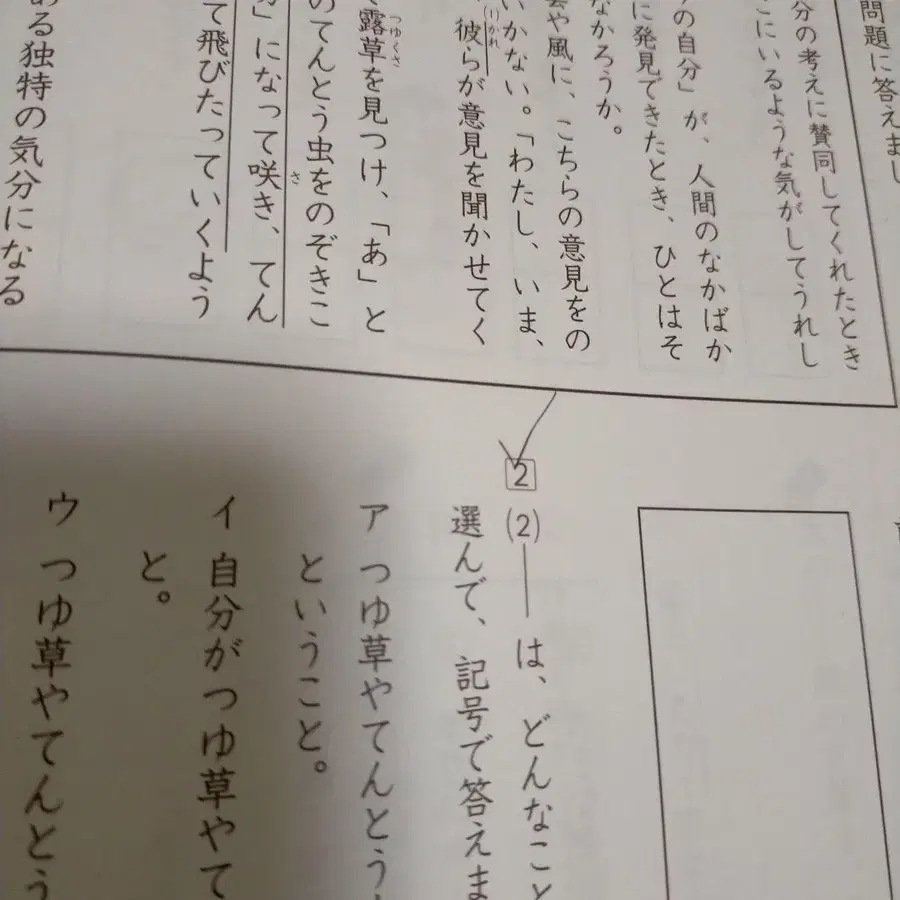 問題に答えまし
分の考えに賛同してくれたとき
こにいるような気がしてうれし
の自分」が、人間のなかばか
に発見できたとき、ひとはそ
なかろうか。
や風に、こちらの意見をの
いかない。「わたし、いま、
(1)彼らが意見を聞かせてく
かれ
露草を見つけ、「あ」と
つゆくさ
のてんとう虫をのぞきこ
」になって咲き、てん
さ
て飛びたっていくよう
ある独特の気分になる
2
(2)――は、どんなこと
選んで、記号で答えま
ア つゆ草やてんとう
ということ。
イ 自分がつゆ草やて
と。
ウ つゆ草やてんとう